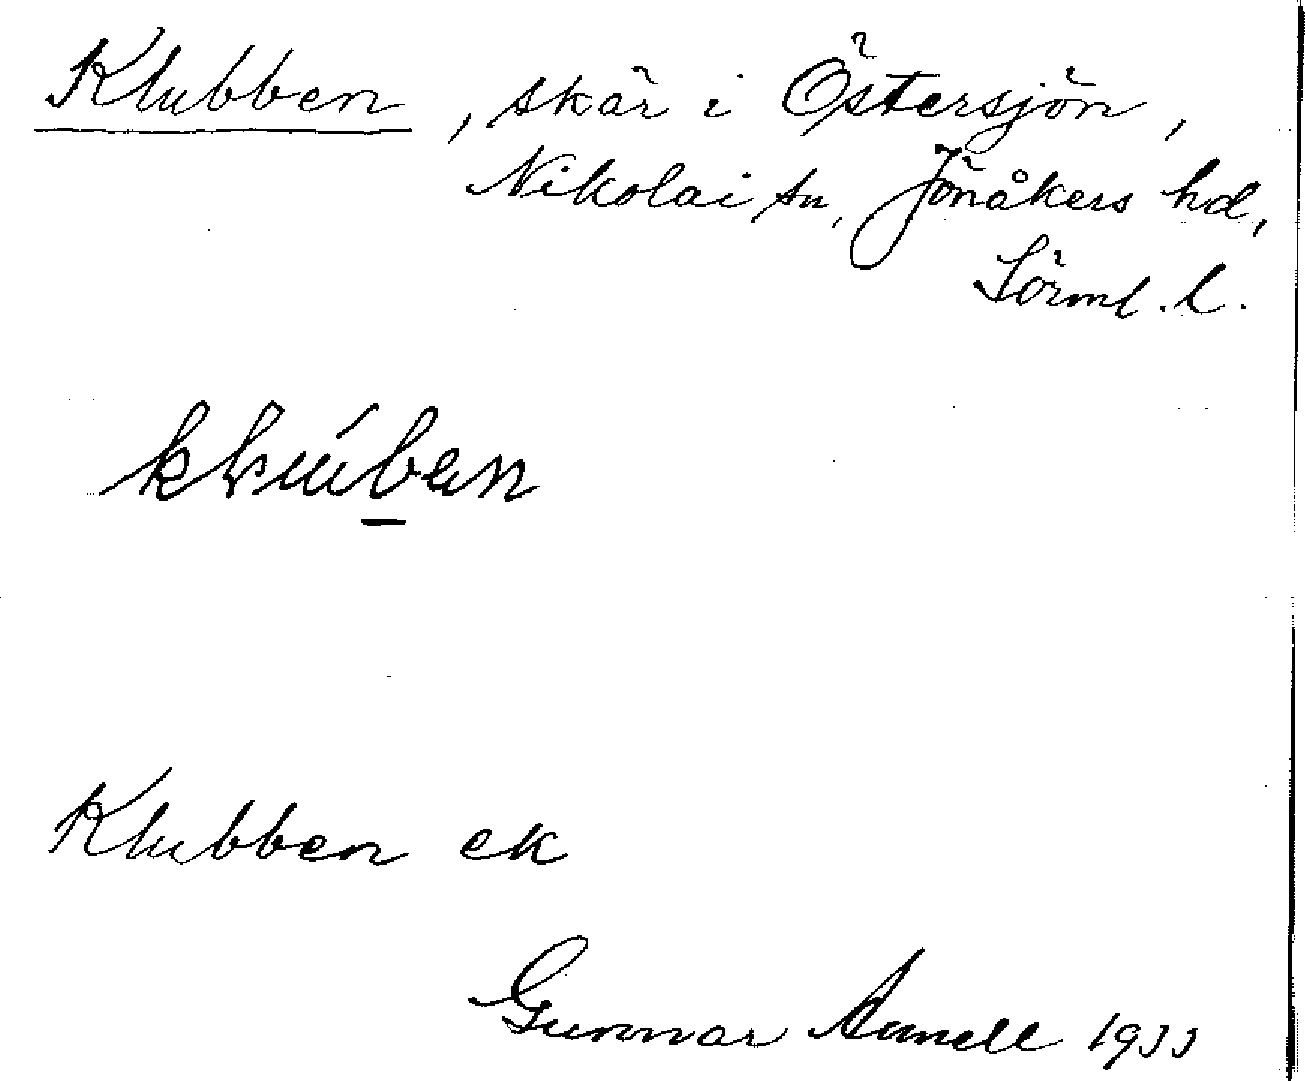 Klubben, skär i Östersjön,
Nikolai sn, Jönåkers hd,
Sörml. l.
Klubben ek
Gunnar 1933